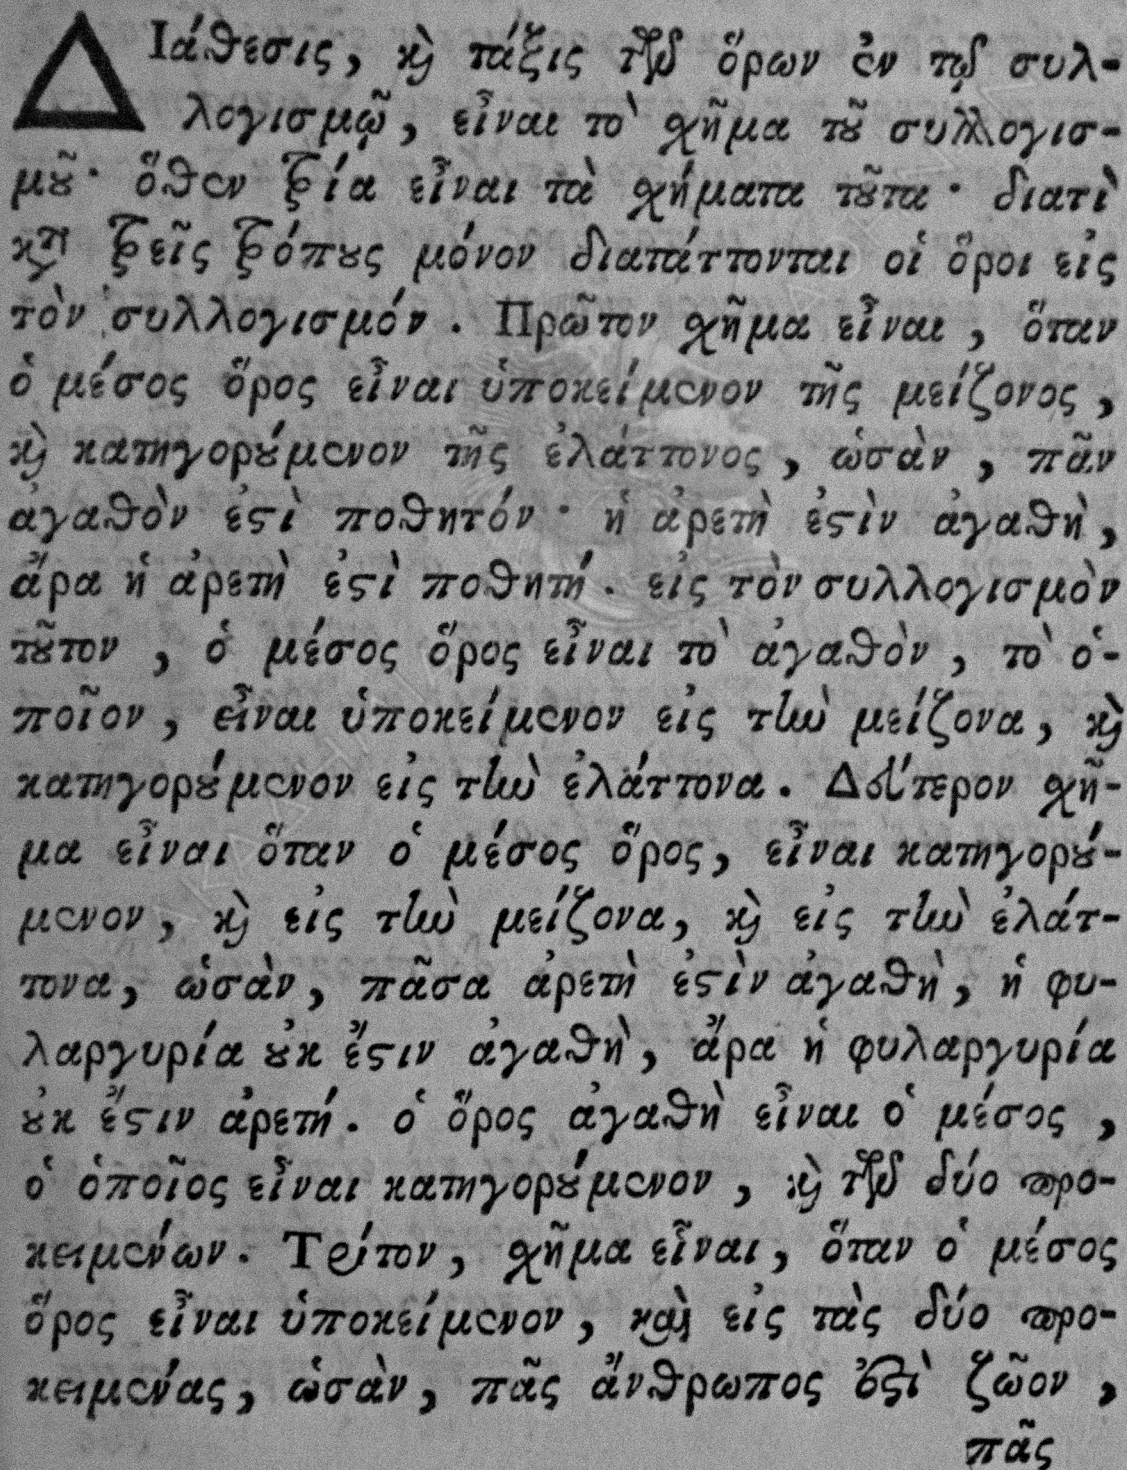 Διάθεσις, καὶ τάξις τῶν ὅρων ἐν τῷ συλ-
λογισμῷ, εἶναι τὸ σχῆμα τοῦ συλλογισ-
μοῦ· ὅθεν τρία εἶναι τὰ σχήματα τοῦτα· διατὶ
κατὰ τρεῖς τρόπους μόνον διατάττονται οἱ ὅροι εἰς
τὸν συλλογισμόν. Πρῶτον σχῆμα εἶναι, ὅταν
ὁ μέσος ὅρος εἶναι ὑποκείμενον τῆς μείζονος,
καὶ κατηγορούμενον τῆς ἐλάττονος, ὡσὰν, πᾶν
ἀγαθὸν ἐστὶ ποθητόν· ἡ ἀρετὴ ἐστὶν ἀγαθὴ,
ἄρα ἡ ἀρετὴ ἐστὶ ποθητή. εἰς τὸν συλλογισμὸν
τοῦτον, ὁ μέσος ὅρος εἶναι τὸ ἀγαθὸν, τὸ ὁ-
ποῖον, εἶναι ὑποκείμενον εἰς τὴν μείζονα, καὶ
κατηγορούμενον εἰς τὴν ἐλάττονα. Δεύτερον σχῆ-
μα εἶναι ὅταν ὁ μέσος ὅρος, εἶναι κατηγορού-
μενον, καὶ εἰς τὴν μείζονα, καὶ εἰς τὴν ἐλάτ-
τονα, ὡσὰν, πᾶσα ἀρετὴ ἐστὶν ἀγαθὴ, ἡ φυ-
λαργυρία οὐκ ἔστιν ἀγαθὴ, ἄρα ἡ φυλαργυρία
οὐκ ἔστιν ἀρετή. ὁ ὅρος ἀγαθὴ εἶναι ὁ μέσος,
ὁ ὁποῖος εἶναι κατηγορούμενον, καὶ τῶν δύο προ-
κειμένων. Τρίτον, σχῆμα εἶναι, ὅταν ὁ μέσος
ὅρος εἶναι ὑποκείμενον, καὶ εἰς τὰς δύο προ-
κειμένας, ὡσὰν, πᾶς ἄνθρωπος ἐστὶ ζῶον,
πᾶς